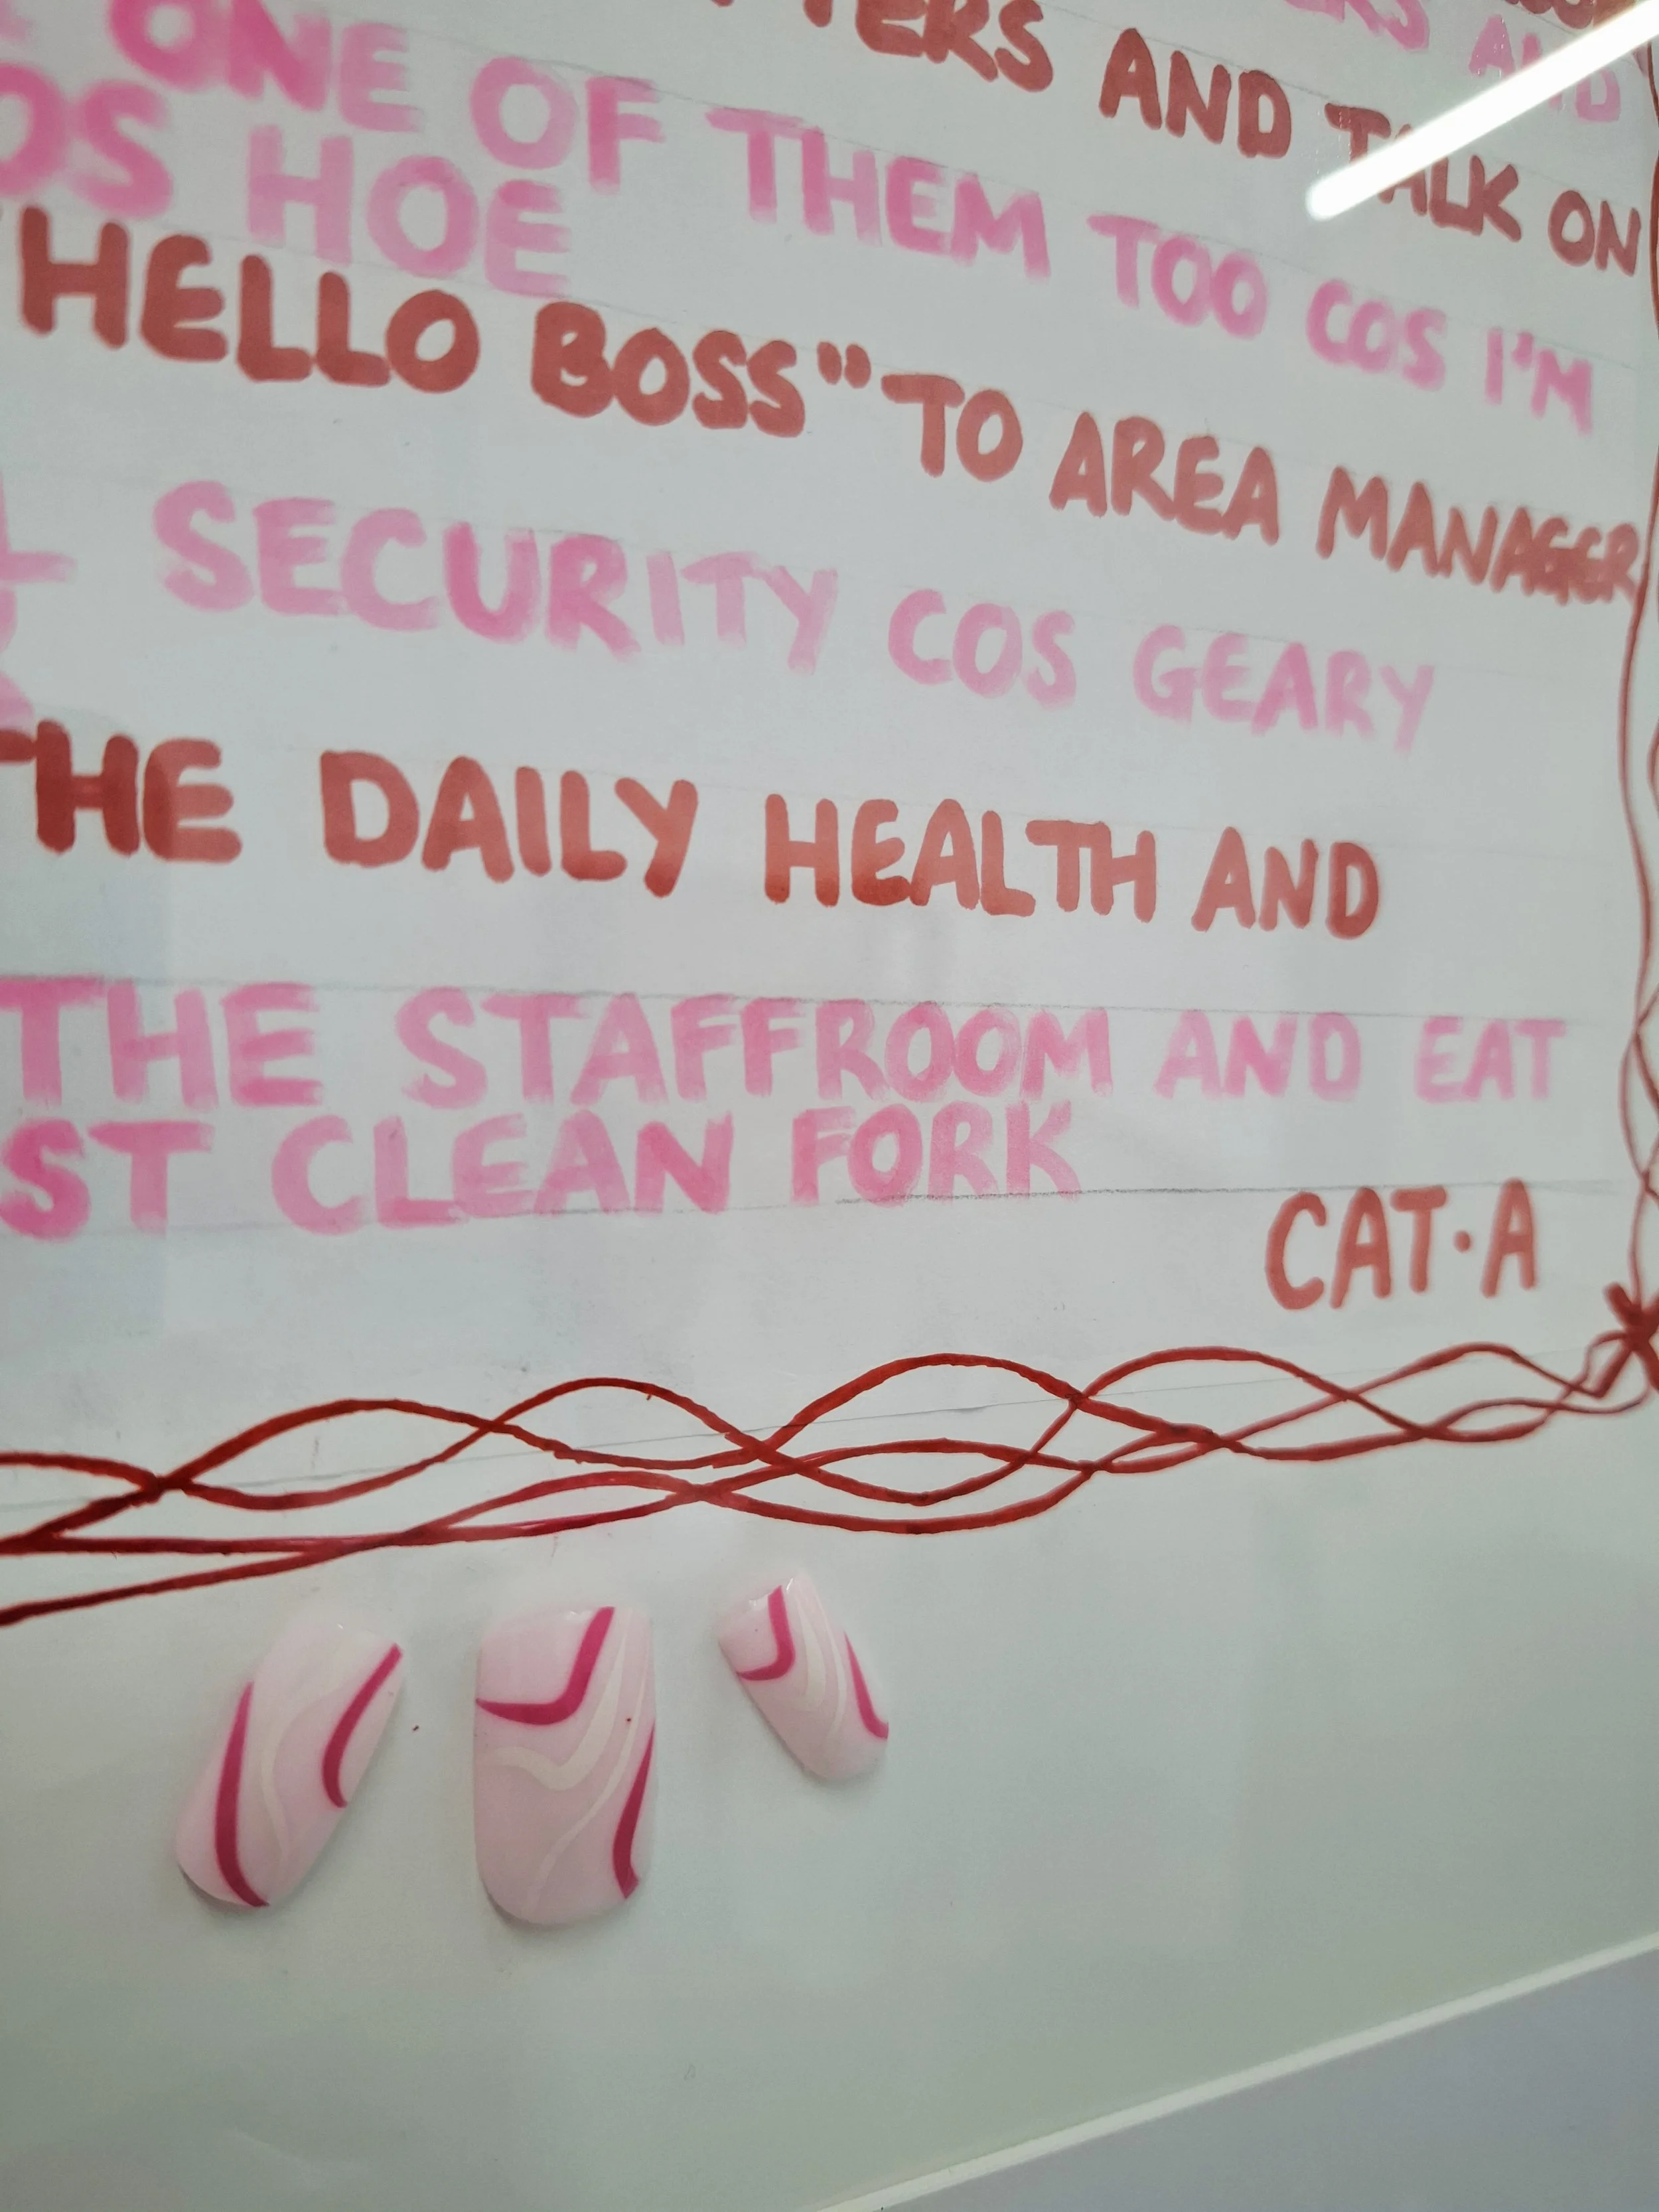 TERS AND TALK ON
ONE OF THEM TOO COS I'M
OS HOE
"HELLO BOSS" TO AREA MANAGER
SECURITY COS GEARY
THE DAILY HEALTH AND
THE STAFFROOM AND EAT
ST CLEAN FORK
CAT·A